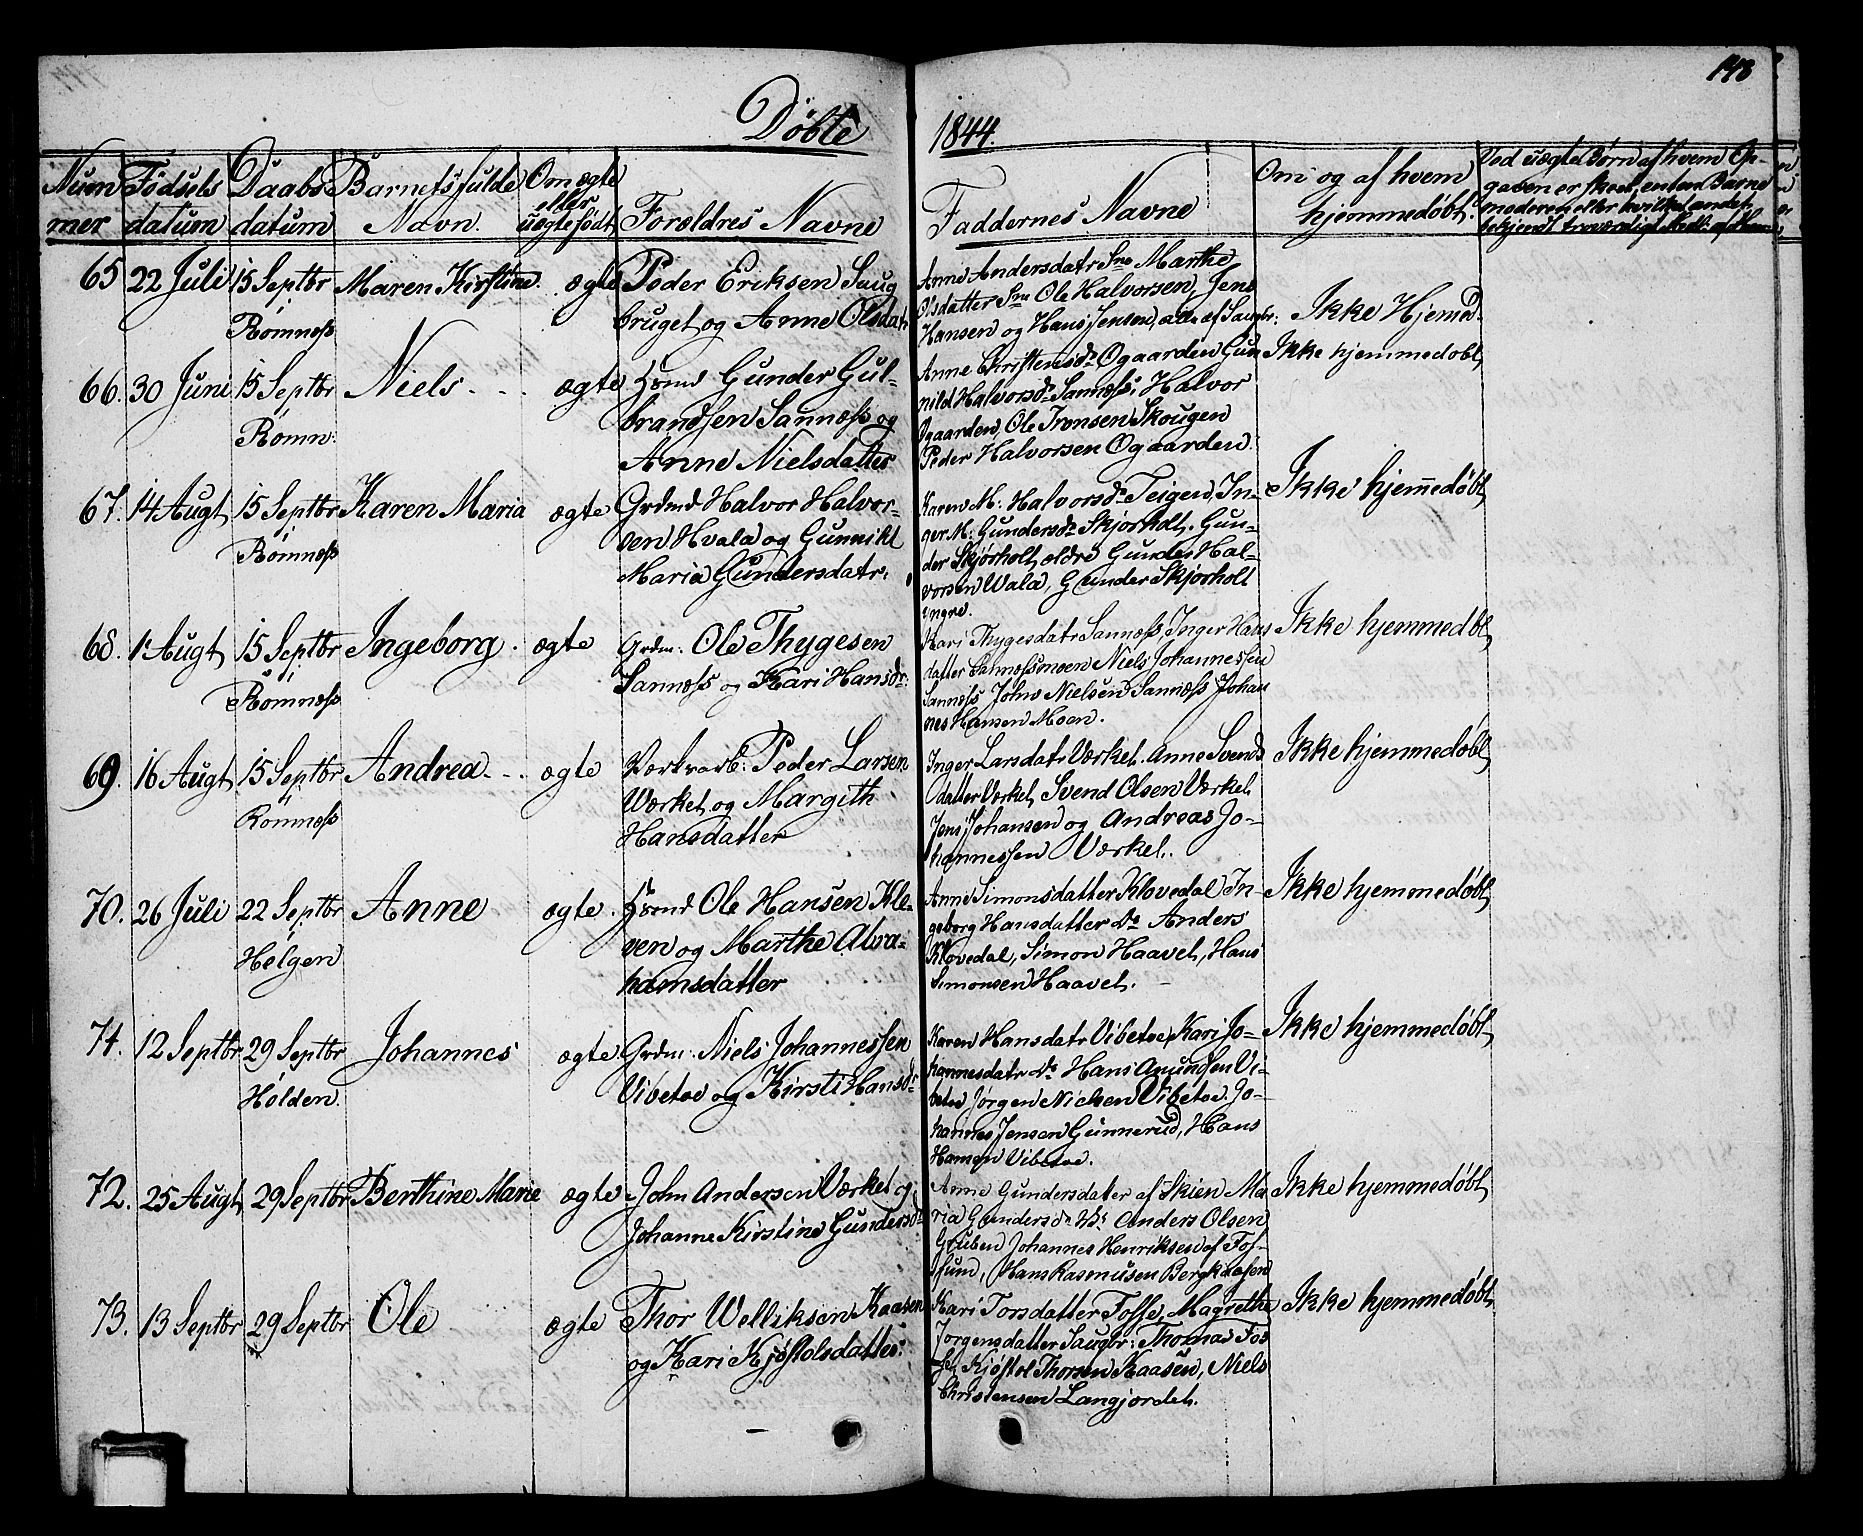 148
Døbte 1844.
Num mer
Fødsels datum
Daabs datum
Barnets fulde Navn.
Om ægte eller uægte født
Forældres Navne
Faddernes Navne
Om og af hvem hjemmedøbt
Ved uægte Børn af hvem Op-
gaven er skeet, enten Barne
moderen eller hvilket andet
65 22 Juli 15 Septbr Rømness Maren Kirstine. ægte
Peder Eriksen Saug
bruget og Anne Olsdatr
Anne Andersdatr Sne Marthe
Olsdatter Sne Ole Halvorsen, Jens
Hansen og Hans Jensen, alle af Saugbr:
Ikke Hjemed.
66. 30 Juni 15 Septbr Rømn: Niels - - . ægte
Hsmd Gunder Gul-
brandsen Sannæss og
Anne Nielsdatter
Anne Christensdr Ogaarden Gun
nild Halvorsdr Sannæss, Halvor
Ogaarden, Ole Tronsen Skougen
Peder Halvorsen Ogaarden
Ikke hjemmedobt
67. 14 Augt 15 Septbr Rømness Karen Maria ægte
Grdmd Halvor Halvor-
sen Hvala og Gunnild
Maria Gundersdatr.
Karen M: Halvorsdr Teigen, In-
ger M: Gundersdr Skjorholt. Gun-
der Skjørholt ældre Gunder Hal-
vorsen Wala, Gunder Skjorholt
yngre.
Ikke hjemedøbt
68. 1 Augt 15 Septbr Rømness Ingeborg. ægte
Grdm: Ole Thygesen
Sannæss og Kari Hansdr:
Kari Thygesdatr Sannæss, Inger Hans
datter Sannæssmoen Niels Johannessen
Sannæss John Nielsen Sannæss Johan
nes Hansen Moen.
Ikke hjemmedøbt
69. 16 Augt 15 Septbr Rømness Andrea - - . ægte
Værksarb: Peder Larsen
Værket og Margith
Hansdatter
Inger Larsdatr Værket. Anne Svends
datter Værket Svend Olsen Værket
Jens Johansen og Andreas Jo-
hannessen Værket.
Ikke hjemmedøbt
70. 26 Juli 22 Septbr Helgen Anne ægte.
Hsmd Ole Hansen Kle-
ven og Marthe Abra-
hamsdatter
Anne Simonsdatter Klovedal In-
geborg Hansdatter Do Anders
Klovedal, Simon Haavet, Hans
Simonsen Haavet.
Ikke hjemmedøbt
71. 12 Septbr 29 Septbr Holden. Johannes ægte
Grdm: Niels Johannessen
Vibetoe og Kirsti Hansdr
Karen Hansdatr Vibetoe, Kari Jo-
hannesdatr Do Hans Amundsen Vi-
betoe Jørgen Nielsen Vibetoe. Jo-
hannes Jensen Gunnerud, Hans
Hansen Vibetoe.
Ikke hjemmedøbt
72. 25 Augt 29 Septbr Berthine Marie ægte
John Andersen Værket og
Johanne Kirstine Gundersdr
Anne Gundersdatter af Skien Ma
ria Gundersdr Do Anders Olsen
Gruben Johannes Henriksen af Fos-
sum, Hans Rasmusen Bergkaasen
Ikke hjemmedøbt
73. 13 Septbr 29 Septbr Ole ægte
Thor Velliksen Kaasen
og Kari Kjøstolsdatter.
Kari Torsdatter Fosse, Magrethe
Jørgensdatter Saugbr: Thomas Fos
se, Kjøstol Thorsen Kaasen, Niels
Christensen Langjordet.
Ikke hjemmedøbt